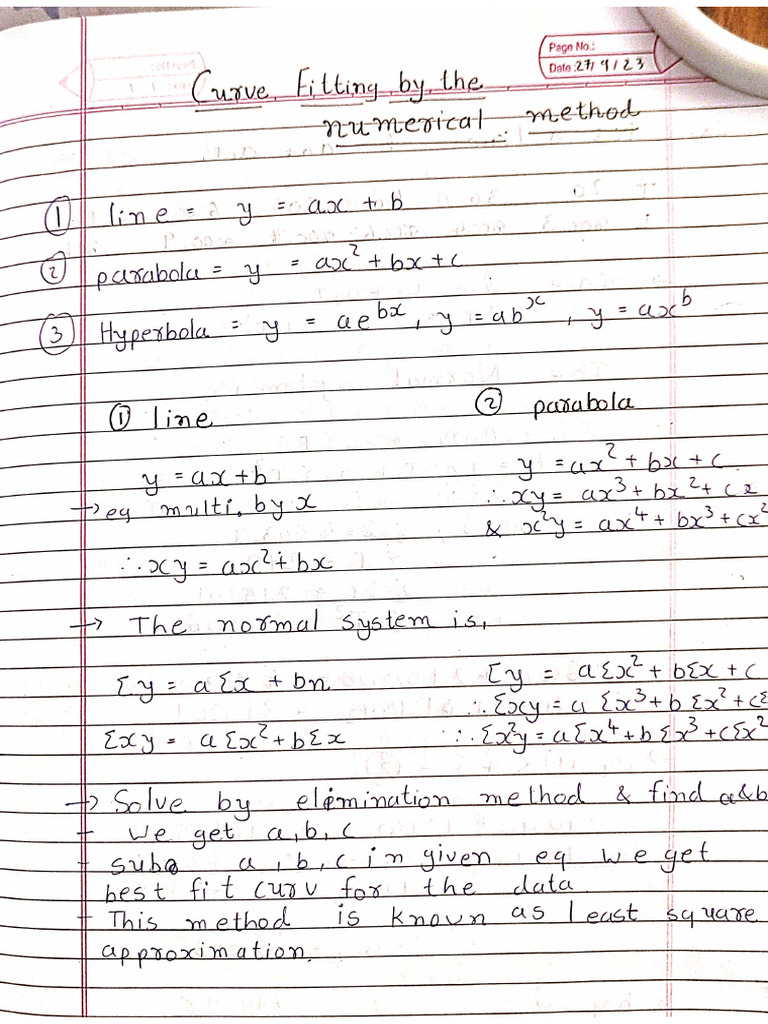 Page No.:
Date: 27/9/23
Curve Fitting by the
numerical method
① line = y = ax + b
② parabola = y = ax² + bx + c
③ Hyperbola = y = ae^bx, y = ab^x, y = ax^b
① line ② parabola
y = ax+b y = ax² + bx + c
→ eq multi. by x ∴ xy = ax³ + bx² + cx
& x²y = ax⁴ + bx³ + cx²
∴ xy = ax² + bx
→ The normal system is,
Σy = aΣx + bn Σy = aΣx² + bΣx + c
∴ Σxy = a Σx³ + b Σx² + cΣ
Σxy = aΣx² + bΣx ∴ Σx²y = aΣx⁴ + bΣx³ + cΣx²
→ Solve by elimination method & find a&b
- We get a, b, c
- subs a, b, c in given eq we get
best fit curv for the data
- This method is known as least square
approximation.